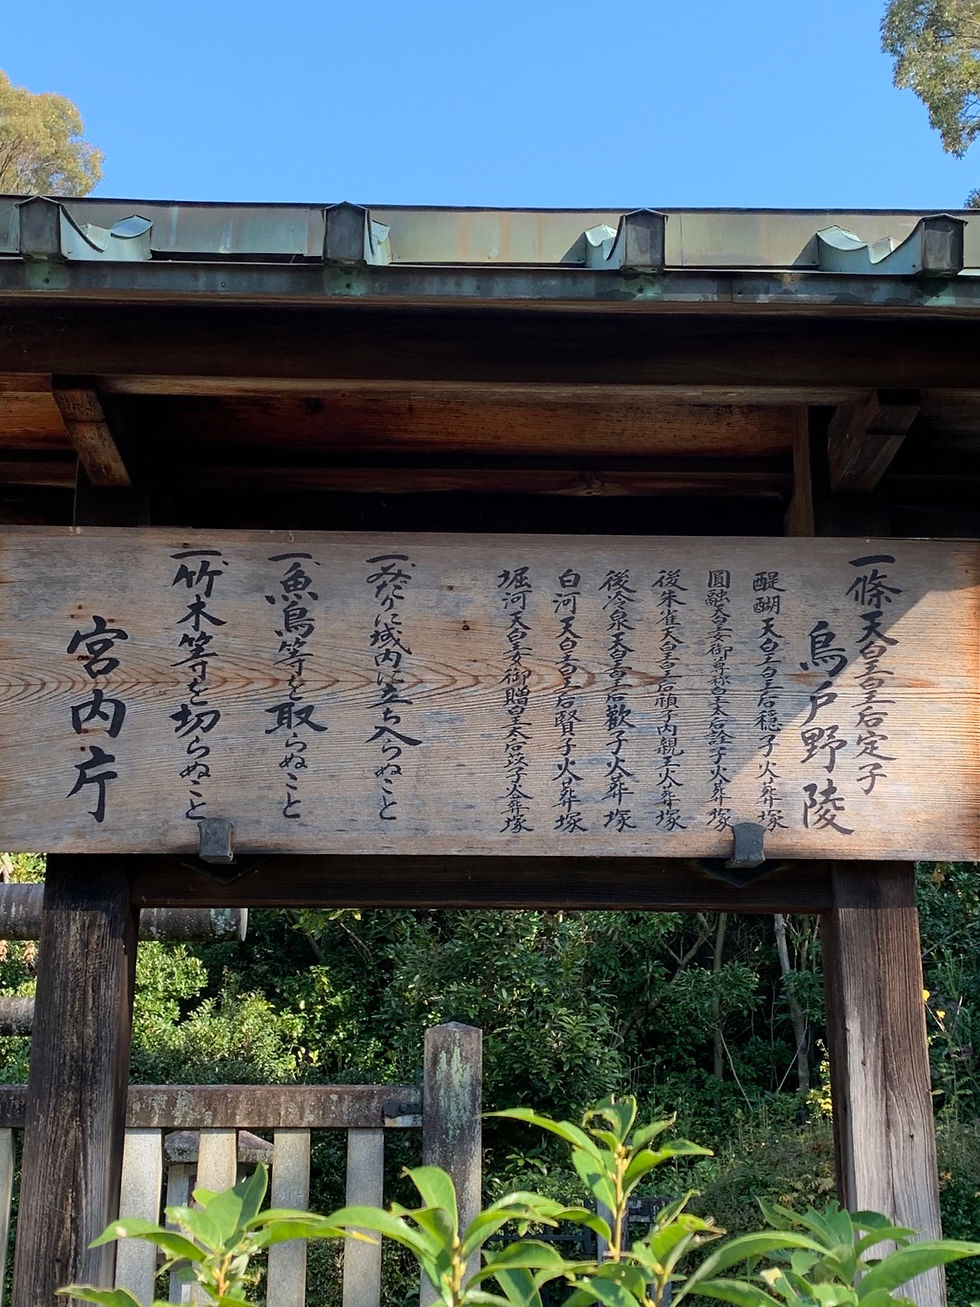 一條天皇皇后定子
鳥戸野陵
醍醐天皇皇后穏子火葬塚
圓融天皇女御尊称皇太后詮子火葬塚
後朱雀天皇皇后禎子内親王火葬塚
後冷泉天皇皇后歓子火葬塚
白河天皇皇后賢子火葬塚
堀河天皇女御贈皇太后苡子火葬塚
一みだりに域内に立ち入らぬこと
一魚鳥等を取らぬこと
一竹木等を切らぬこと
宮内庁